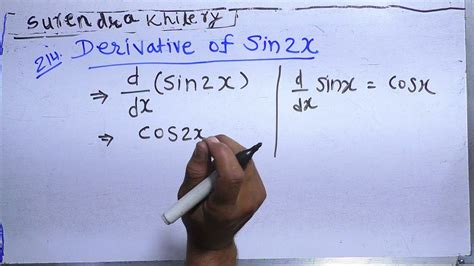 Surendra Khilery
214. Derivative of Sin2x
⇒ d/dx (Sin2x)
d/dx sinx = cosx
⇒ cos2x